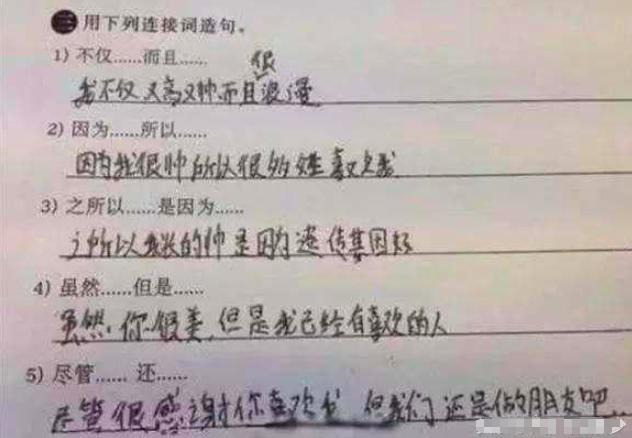 三 用下列连接词造句。
1) 不仅……而且……
我不仅又高又帅而且很浪漫
2) 因为……所以……
因为我很帅所以很多女生喜欢我
3) 之所以……是因为……
之所以我长的帅是因为遗传基因好
4) 虽然……但是……
虽然,你很美,但是我已经有喜欢的人
5) 尽管…… 还……
尽管很感谢你喜欢我 但我们还是做朋友吧..